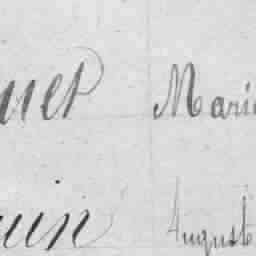 uet Marie
uin Auguste